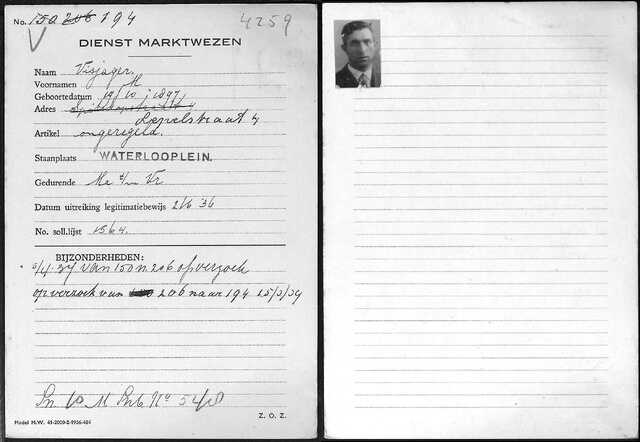 No. 150 206 194
4259
V
DIENST MARKTWEZEN
Naam Visjager.
Voornamen M
Geboortedatum 19/10 1897
Adres
Lepelstraat 4
Artikel ongeregeld.
Staanplaats WATERLOOPLEIN.
Gedurende Ma t/m Vr
Datum uitreiking legitimatiebewijs 2/6 '36
No. soll.lijst 1564.
BIJZONDERHEDEN:
5/4.37 van 150 n 206 op verzoek
op verzoek van 206 naar 194 15/3/39
M No 54/
Z. O. Z.
Model M.W. 41-2000-2-1936-404